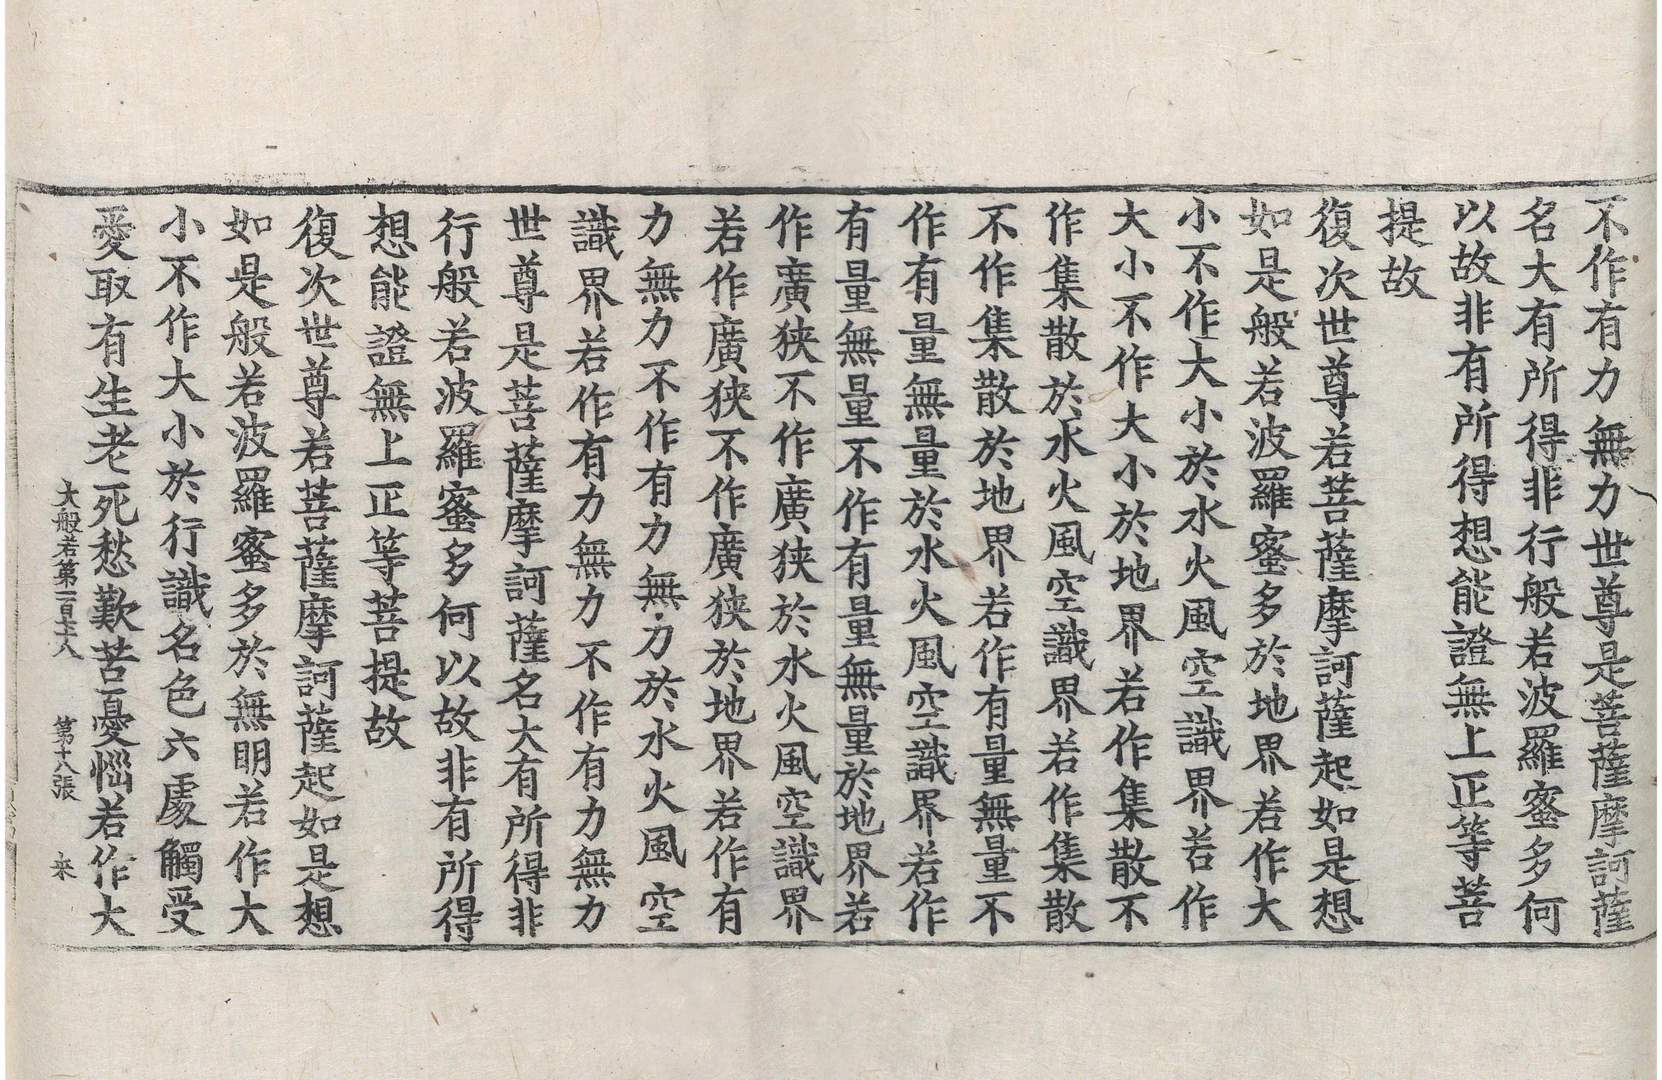 不作有力無力世尊是菩薩摩訶薩
名大有所得非行般若波羅蜜多何
以故非有所得想能證無上正等菩
提故
復次世尊若菩薩摩訶薩起如是想
如是般若波羅蜜多於地界若作大
小不作大小於水火風空識界若作
大小不作大小於地界若作集散不
作集散於水火風空識界若作集散
不作集散於地界若作有量無量不
作有量無量於水火風空識界若作
有量無量不作有量無量於地界若
作廣狹不作廣狹於水火風空識界
若作廣狹不作廣狹於地界若作有
力無力不作有力無力於水火風空
識界若作有力無力不作有力無力
世尊是菩薩摩訶薩名大有所得非
行般若波羅蜜多何以故非有所得
想能證無上正等菩提故
復次世尊若菩薩摩訶薩起如是想
如是般若波羅蜜多於無明若作大
小不作大小於行識名色六處觸受
愛取有生老死愁歎苦憂惱若作大
大般若第一百七十八 第十八張 來